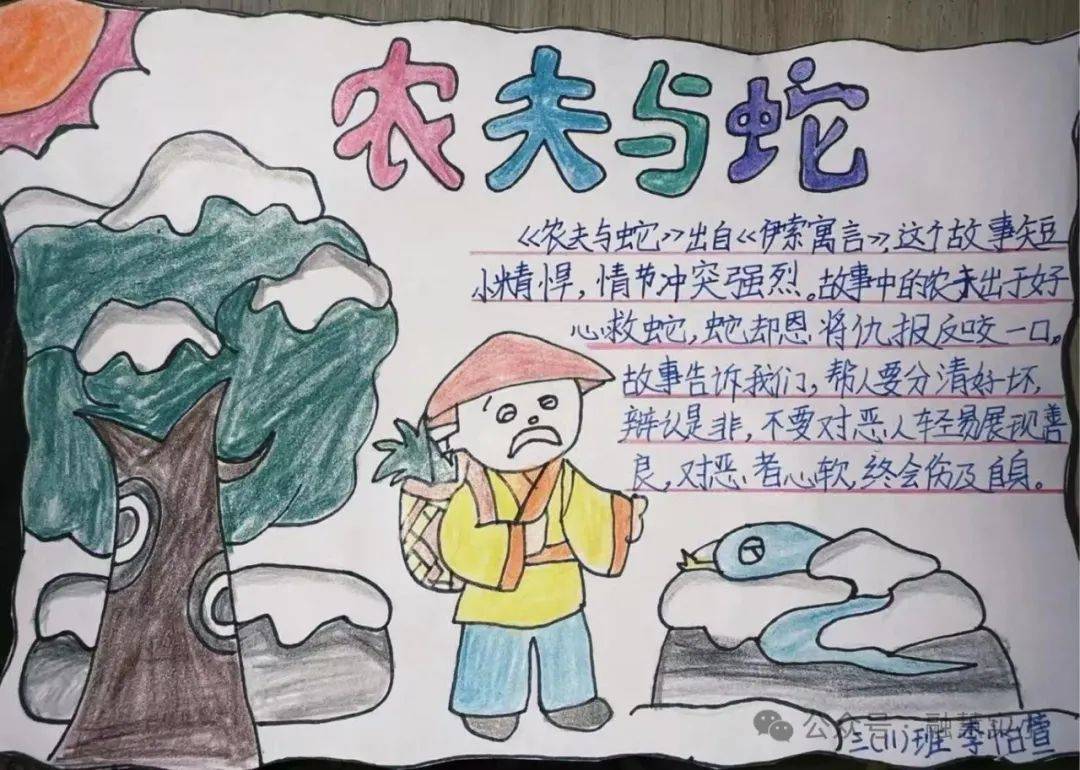 农夫与蛇
《农夫与蛇》出自《伊索寓言》,这个故事短
小精悍,情节冲突强烈。故事中的农夫出于好
心救蛇,蛇却恩将仇报反咬一口。
故事告诉我们,帮人要分清好坏,
辨认是非,不要对恶人轻易展现善
良,对恶者心软,终会伤及自身。
公众号
三(11)班 李